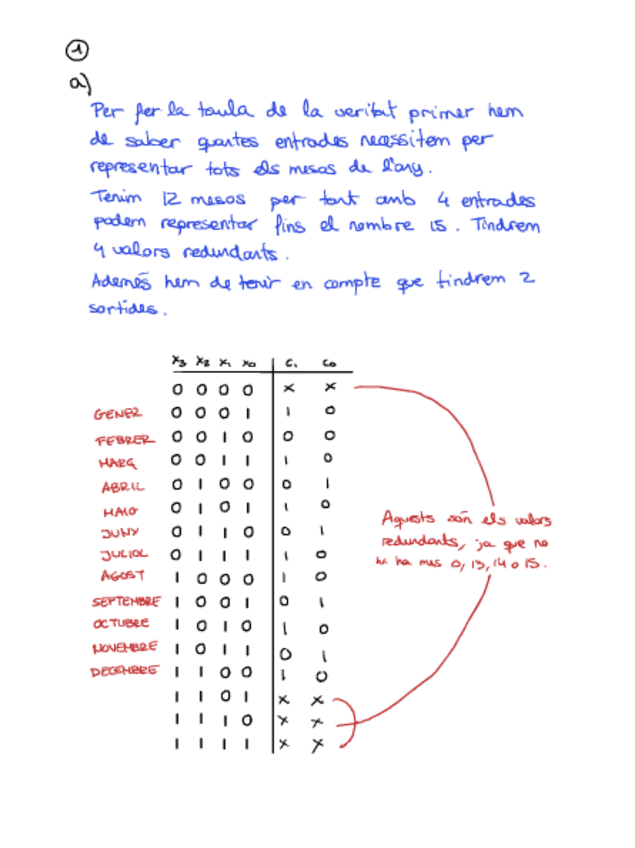 1
a)
Per fer la taula de la veritat primer hem
de saber quantes entrades necessitem per
representar tots els mesos de l'any.
Tenim 12 mesos per tant amb 4 entrades
podem representar fins el nombre 15. Tindrem
4 valors redundants.
Ademés hem de tenir en compte que tindrem 2
sortides.
x3 x2 x1 x0 C1 C0
0 0 0 0 x x
GENER 0 0 0 1 1 0
FEBRER 0 0 1 0 0 0
MARÇ 0 0 1 1 1 0
ABRIL 0 1 0 0 0 1
MAIG 0 1 0 1 1 0
JUNY 0 1 1 0 0 1
JULIOL 0 1 1 1 1 0
AGOST 1 0 0 0 1 0
SEPTEMBRE 1 0 0 1 0 1
OCTUBRE 1 0 1 0 1 0
NOVEMBRE 1 0 1 1 0 1
DECEMBRE 1 1 0 0 1 0
1 1 0 1 x x
1 1 1 0 x x
1 1 1 1 x x
Aquests són els valors
redundants, ja que no
hi ha mes 0, 13, 14 o 15.